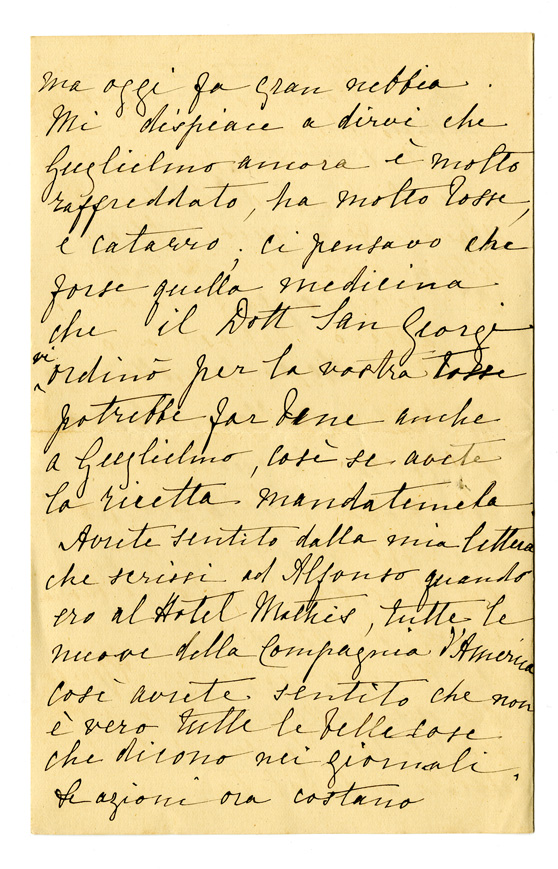 ma oggi fa gran nebbia.
Mi dispiace a dirvi che
Guglielmo ancora è molto
raffreddato, ha molto tosse,
e catarro; ci pensavo che
forse quella medicina
che il Dott San Giorgi
vi
ordinò per la vostra tosse
potrebbe far bene anche
a Guglielmo, così se avete
la ricetta mandatemela.
Avrete sentito dalla mia lettera
che scrissi ad Alfonso quando
ero al Hotel Mathis, tutte le
nuove della Compagnia d'America
così avrete sentito che non
è vero tutte le belle cose
che dicono nei giornali.
Le azioni ora costano